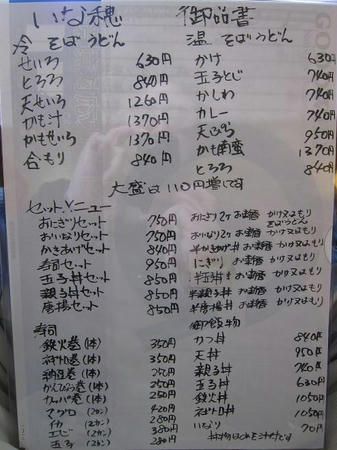 いなら穂 御品書
冷 そばうどん
せいろ 630円
とろろ 840円
天せいろ 1260円
かも汁 1370円
かもせいろ 1370円
合もり 840円
温 そばうどん
かけ 630円
玉子とじ 740円
かしわ 740円
カレー 740円
天ぷら 950円
かも南蛮 1370円
とろろ 840円
大盛は110円増です
セットメニュー
おにぎりセット 750円 おにぎり2ケ お新香 かけ又はもり
そばうどん
おいなりセット 750円 おいなり2ケ お新香 かけ又はもり
かきあげセット 840円 半かきあげ丼 お新香 かけ又はもり
寿司セット 950円 にぎり お新香 かけ又はもり
玉子丼セット 850円 半玉丼 お新香 かけ又はもり
親子丼セット 850円 半親子丼 お新香 かけ又はもり
唐揚セット 850円 半唐揚丼 お新香 かけ又はもり
寿司
鉄火巻(1本) 350円
ネギトロ巻(1本) 350円
納豆巻(1本) 250円
かんぴょう巻(1本) 250円
カッパ巻(1本) 250円
マグロ(2カン) 420円
イカ(2カン) 280円
エビ(2カン) 380円
玉子(2カン) 280円
御飯物
カツ丼 840円
天丼 950円
親子丼 740円
玉子丼 630円
鉄火丼 1050円
ネギトロ丼 1050円
いなり 70円
丼物はみそ汁付です